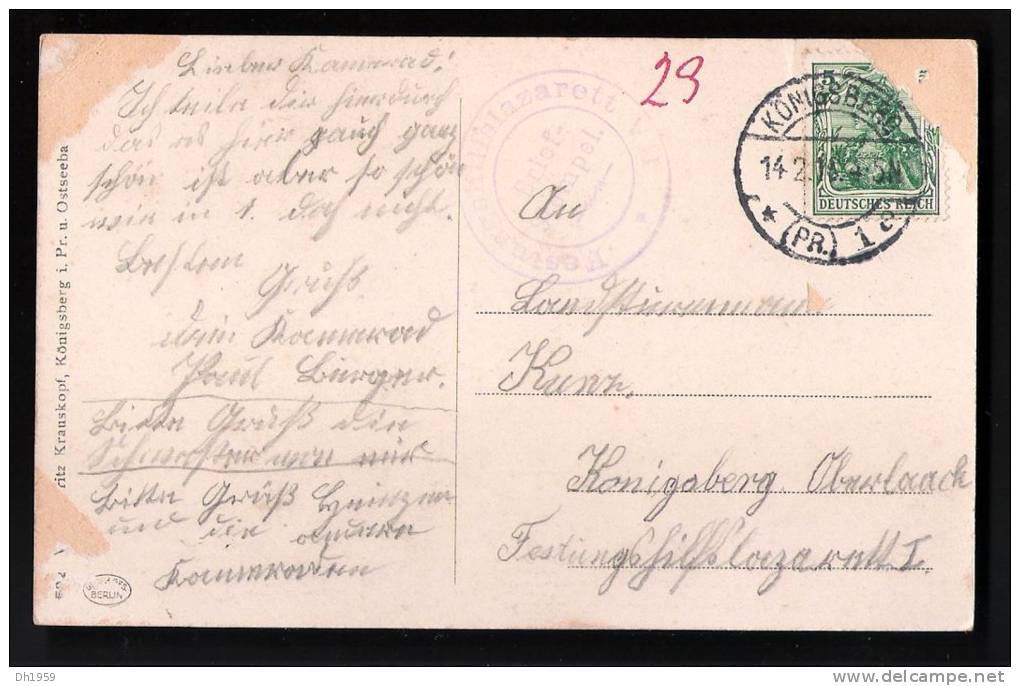 Lieber Kamerad!
Ich teile dir hierdurch
das es hier auch ganz
schön ist aber so schön
wie in 1. doch nicht.
Besten
Gruß
dein Kamerad
Paul Bürger.
Bitte Grüß die
Schwester von mir
Bitte Grüß
und die andere
Kameraden
ritz Krauskopf, Königsberg i. Pr. u. Ostseeba
BERLIN
29
lazarett
Brief-
pel.
KÖNIGSBERG
14.2.
(PR.) 1
DEUTSCHES REICH
An
Landsturmmann
Kunz,
Königsberg Oberlaack
Festungshilfslazarett I.
Dh1959